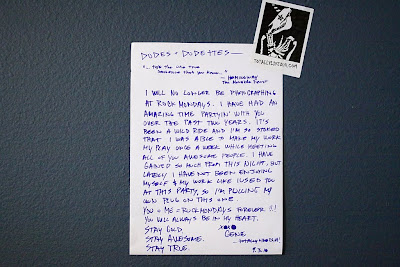 DUDES + DUDETTES —
"... FOR THE ONE TRUE
SENTENCE THAT YOU KNOW..."
— HEMINGWAY
I WILL NO LONGER BE PHOTOGRAPHING
AT ROCK MONDAYS. I HAVE HAD AN
AMAZING TIME PARTYIN' WITH YOU
OVER THE PAST TWO YEARS. IT'S
BEEN A WILD RIDE AND I'M SO STOKED
THAT I WAS ABLE TO MAKE MY WORK
MY PLAY ONCE A WEEK WHILE MEETING
ALL OF YOU AWESOME PEOPLE. I HAVE
GAINED SO MUCH FROM THIS NIGHT, BUT
LATELY I HAVE NOT BEEN ENJOYING
MYSELF & MY WORK LIKE I USED TO
AT THIS PARTY, SO I'M PULLING MY
OWN PLUG ON THIS ONE.
YOU + ME = ROCK MONDAYS FOREVER !!
YOU WILL ALWAYS BE IN MY HEART.
STAY GOLD. XOXO
STAY AWESOME. GENE
STAY TRUE.